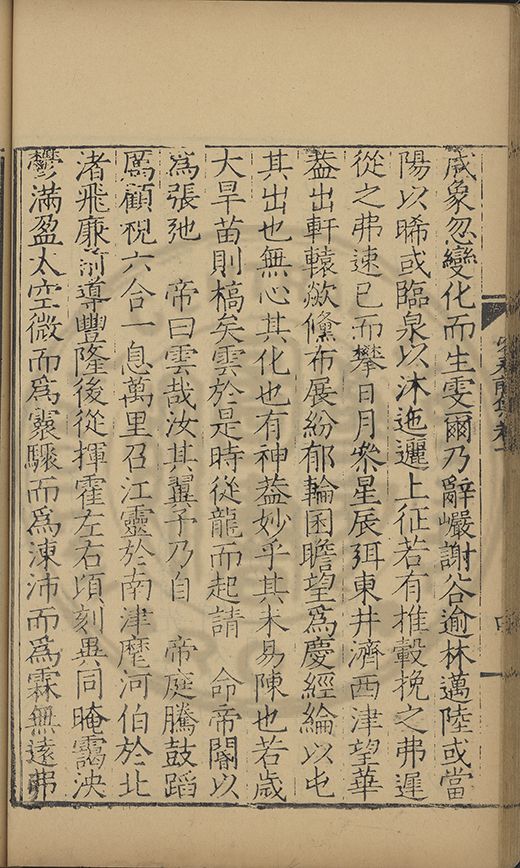 咸象忽變化而生雯爾乃辭巘謝谷逾林邁陸或當
陽以晞或臨泉以沐迤邐上征若有推轂挽之弗遲
從之弗速已而攀日月參星辰弭東井濟西津望華
葢出軒轅歘儵布展紛郁輪囷瞻望為慶經綸以屯
其出也無心其化也有神葢妙乎其未易陳也若歲
大旱苗則槁矣雲於是時從龍而起請 命帝閽以
為張弛 帝曰雲哉汝其翼予乃自 帝庭騰鼓蹈
厲顧稅六合一息萬里召江靈於南津麾河伯於北
渚飛廉前導豐隆後從揮霍左右頃刻異同晻靄泱
鬱滿盈太空微而為霢驟而為涷沛而為霖無遠弗